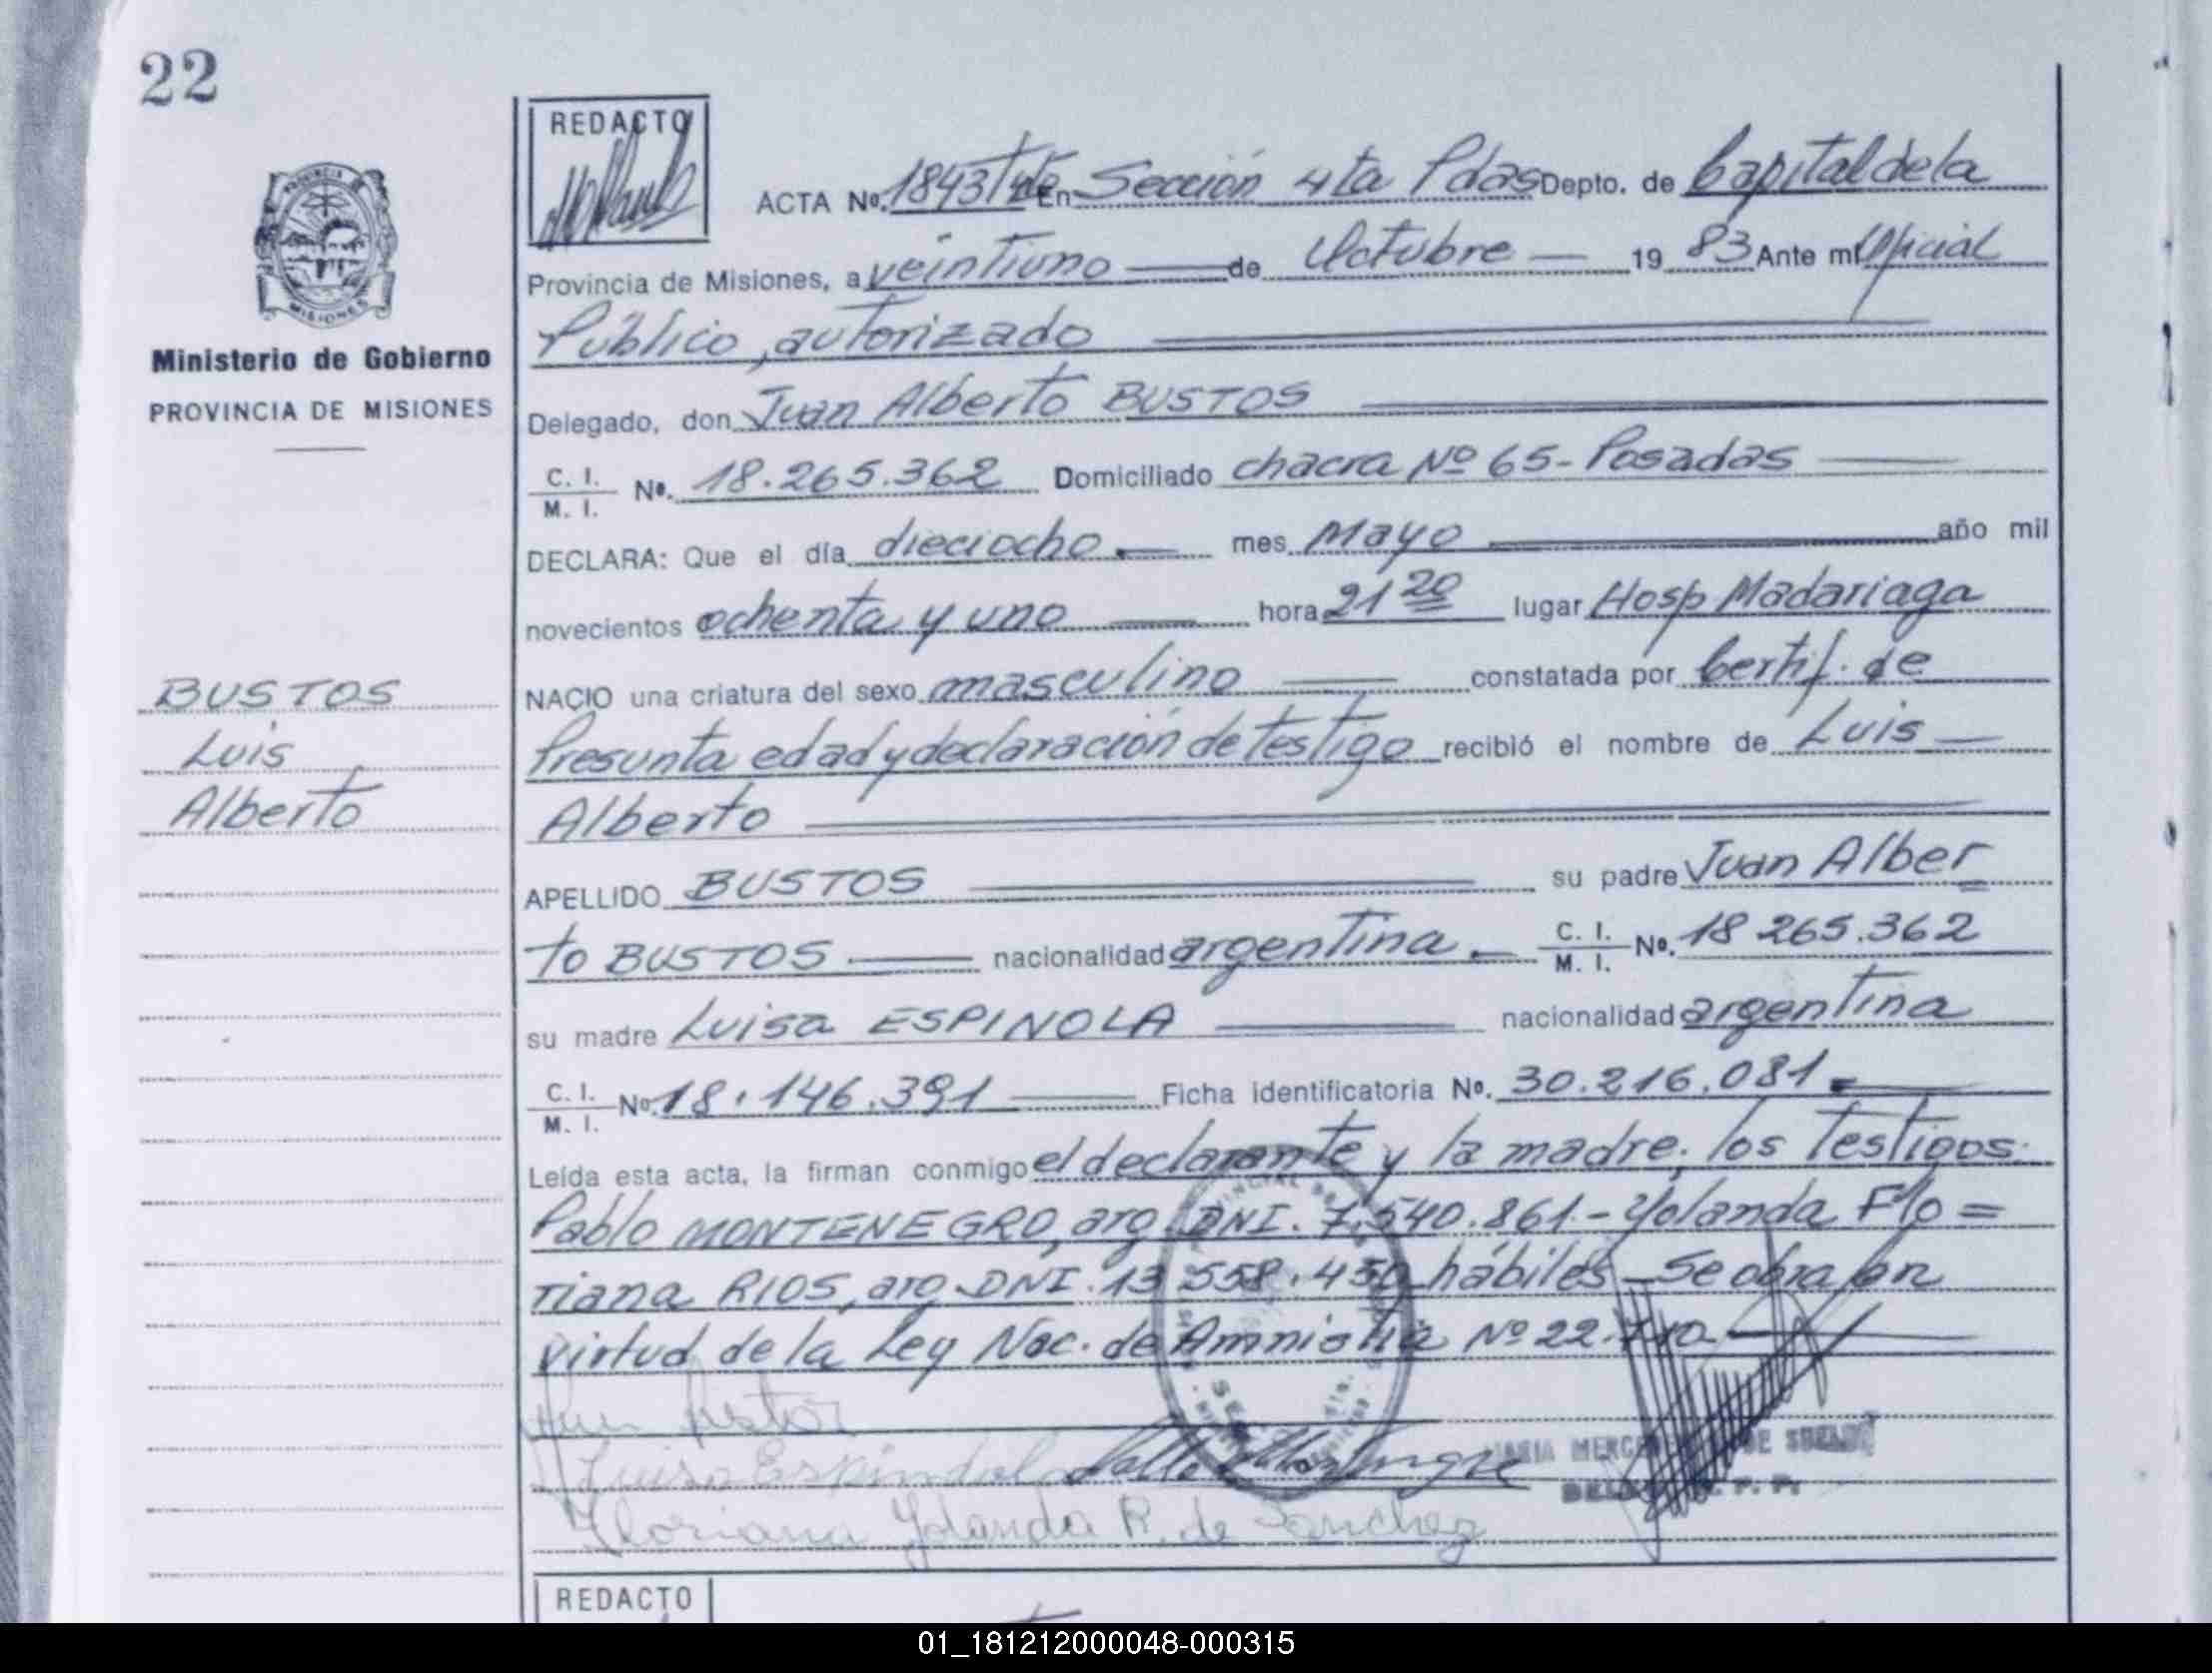 22
REDACTO
ACTA Nº. 1843 En Sección 4ta Pdas Depto. de Capital de la
Provincia de Misiones, a veintiuno de Octubre 1983 Ante mí Oficial
Público, autorizado
Delegado, don Juan Alberto BUSTOS
C. I.
M. I. Nº. 18.265.362 Domiciliado chacra Nº 65 - Posadas
DECLARA: Que el día dieciocho mes Mayo año mil
novecientos ochenta y uno hora 21 20 lugar Hosp Madariaga
NACIO una criatura del sexo masculino constatada por Certif. de
Presunta edad y declaración de testigo recibió el nombre de Luis
Alberto
APELLIDO BUSTOS su padre Juan Alber
to BUSTOS nacionalidad argentina C. I. M. I. Nº. 18 265.362
su madre Luisa ESPINOLA nacionalidad argentina
C. I. M. I. Nº. 18.146.391 Ficha identificatoria Nº. 30.216.081
Leída esta acta, la firman conmigo el declarante y la madre; los testigos:
Pablo MONTENEGRO, arg. DNI. 7.540.861 - Yolanda Flo =
riana RIOS, arg DNI. 13 558.450 hábiles - Se obra en
virtud de la Ley Nac. de Amnistía Nº 22.
Luisa Espindola
Floriana Yolanda R. de Sanchez
PROVINCIA DE
MISIONES
Ministerio de Gobierno
PROVINCIA DE MISIONES
BUSTOS
Luis
Alberto
REDACTO
01_181212000048-000315